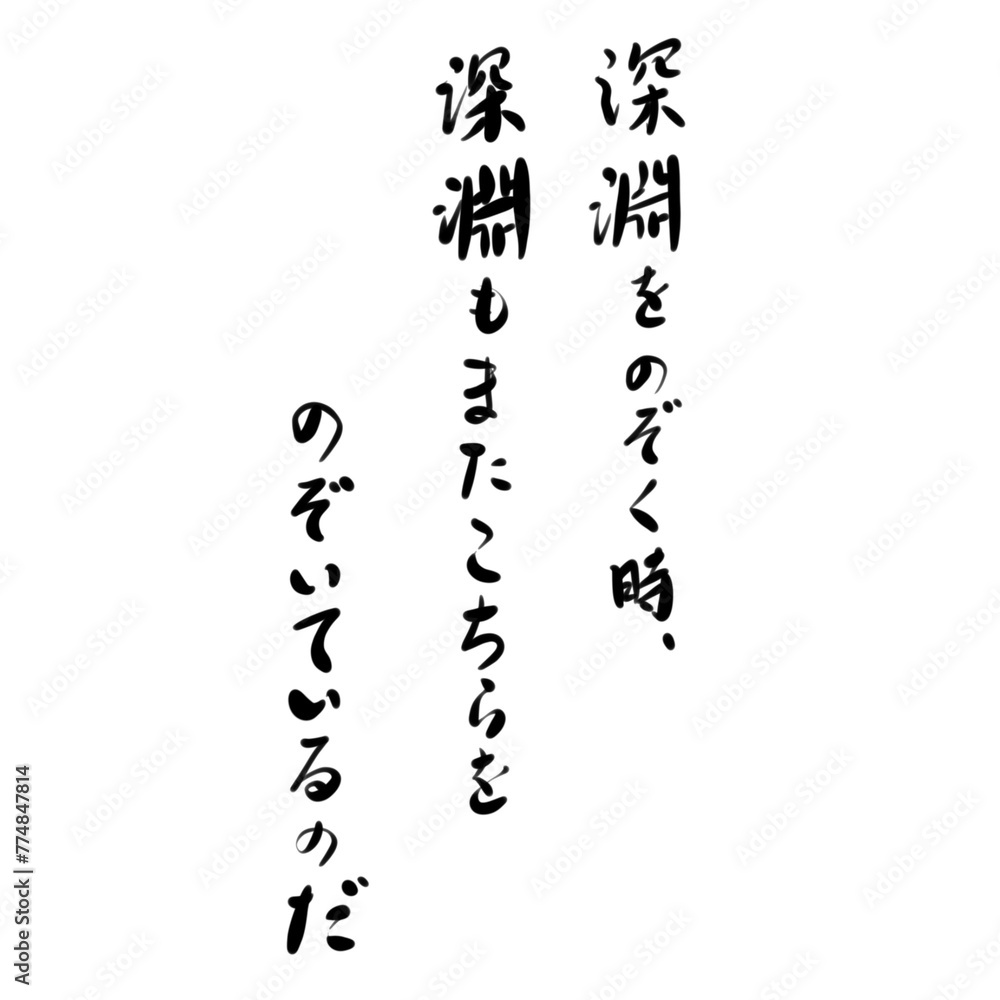 深淵をのぞく時、
深淵もまたこちらを
のぞいているのだ
Adobe Stock | #774847814
Adobe Stock